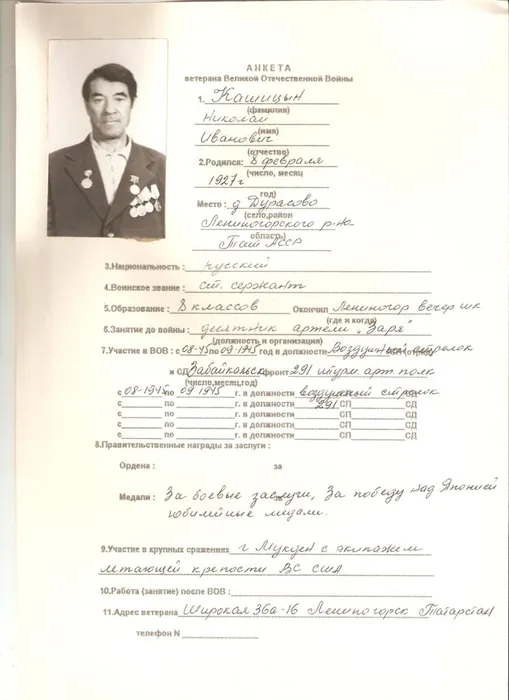 АНКЕТА
ветерана Великой Отечественной Войны
1. Кашицын
(фамилия)
Николай
(имя)
Иванович
(отчество)
2.Родился: 8 февраля
(число, месяц
1927г
год)
Место : д Дурасово
(село,район
Лениногорского р-на
область)
Тат АССР
3.Национальность : русский
4.Воинское звание : ст. сержант
5.Образование : 8 классов Окончил Лениногор вечер шк
(где и когда)
6.Занятие до войны : десятник артели "Заря"
(должность и организация)
7.Участие в ВОВ : с 08-45 по 09-1945 год в должности Воздушный стрелок
и СД Забайкальск фронт 291 штурм. арт полк
(число,месяц,год)
с 08-1945 по 09 1945 г. в должности воздушный стрелок
с по г. в должности 291 СП СД
с по г. в должности СП СД
с по г. в должности СП СД
с по г. в должности СП СД
8.Правительственные награды за заслуги :
Ордена : за
Медали : За боевые заслуги, За победу над Японией
юбилейные медали.
9.Участие в крупных сражениях г Мукден с экипажем
летающей крепости ВС США
10.Работа (занятие) после ВОВ :
11.Адрес ветерана Широкая 36а-16 Лениногорск Татарстан
телефон N